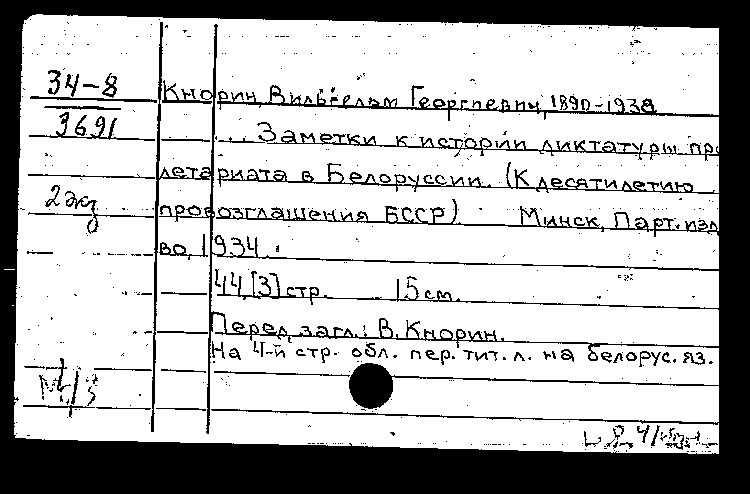 34-8
3691
2 экз
Кнорин, Вильгельм Георгиевич, 1890-1938
... Заметки к истории диктатуры про
летариата в Белоруссии. (К десятилетию
провозглашения БССР) Минск, Парт. изд
во, 1934.
44, [3] стр. 15 см.
Перед загл.: В. Кнорин.
На 4-й стр. обл. пер. тит. л. на белорус. яз.